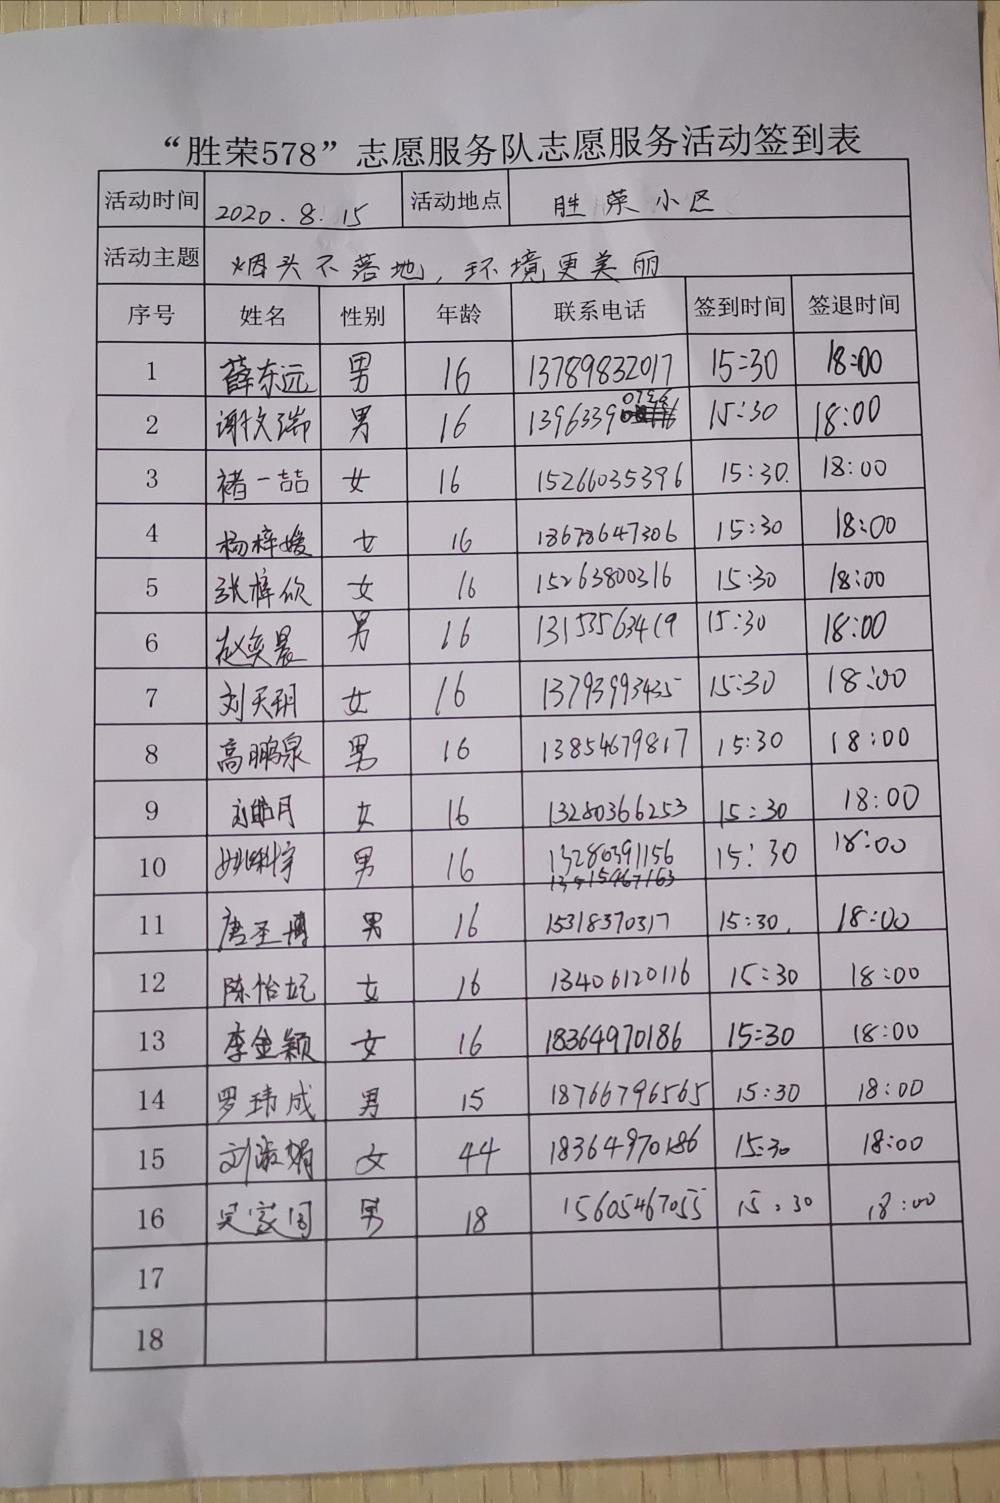 “胜荣578”志愿服务队志愿服务活动签到表
活动时间 2020.8.15 活动地点 胜荣小区
活动主题 烟头不落地，环境更美丽
序号 姓名 性别 年龄 联系电话 签到时间 签退时间
1 薛东远 男 16 13789832017 15:30 18:00
2 谢文瑞 男 16 1396339 15:30 18:00
3 褚一喆 女 16 15266035396 15:30. 18:00
4 杨梓媛 女 16 18678647306 15:30 18:00
5 张梓欣 女 16 15263800316 15:30 18:00
6 赵奕晨 男 16 13153563419 15:30 18:00
7 刘天玥 女 16 13793993435 15:30 18:00
8 高鹏泉 男 16 13854679817 15:30 18:00
9 刘皓月 女 16 13280366253 15:30 18:00
10 姚科宇 男 16 13280391156 15:30 18:00
11 唐圣博 男 16 15318370317 15:30. 18:00
12 陈怡妃 女 16 13406120116 15:30 18:00
13 李金颖 女 16 18364970186 15:30 18:00
14 罗玮成 男 15 18766796565 15:30 18:00
15 刘淑娟 女 44 18364970186 15:30 18:00
16 吴家同 男 18 15605467055 15:30 18:00
17
18